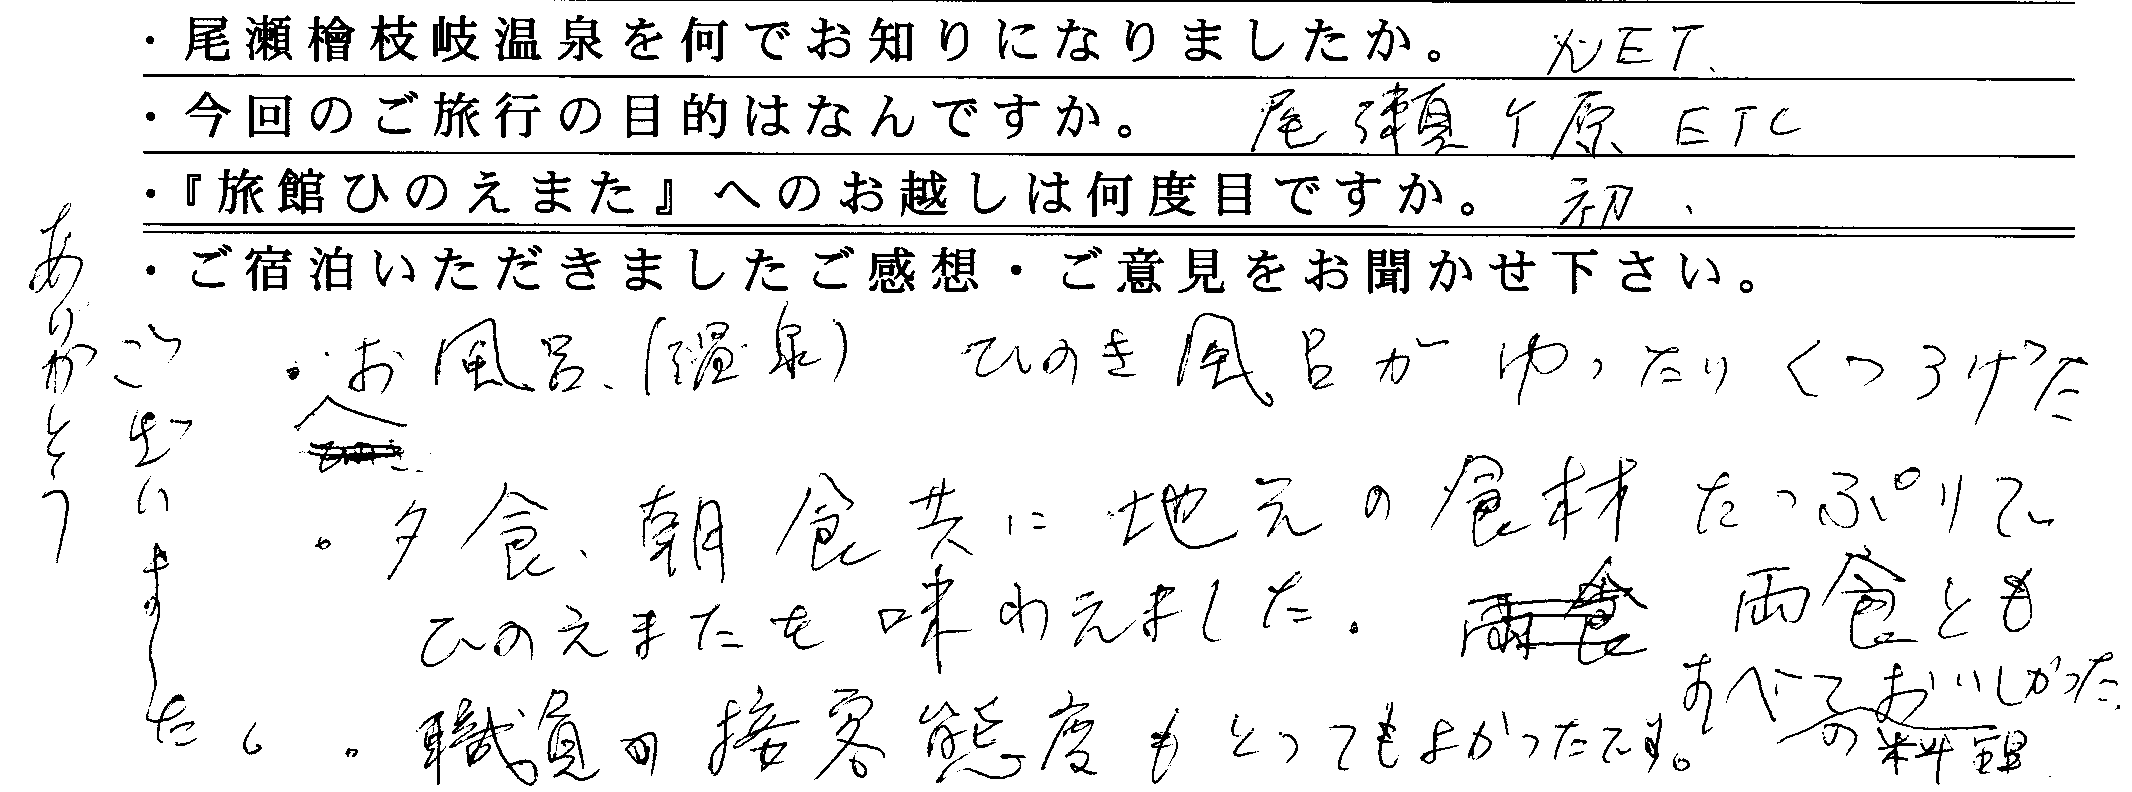 ・尾瀬檜枝岐温泉を何でお知りになりましたか。 NET.
・今回のご旅行の目的はなんですか。 尾瀬ヶ原 ETC
・『旅館ひのえまた』へのお越しは何度目ですか。 初、
・ご宿泊いただきましたご感想・ご意見をお聞かせ下さい。
・お風呂、(温泉) ひのき風呂がゆったりくつろげた
・夕食、朝食共に地元の食材たっぷりで
ひのえまたを味わえました。 両食 両食とも
すべての料理おいしかった
・職員の接客態度もとってもよかったです。
ありがとう
ございました。